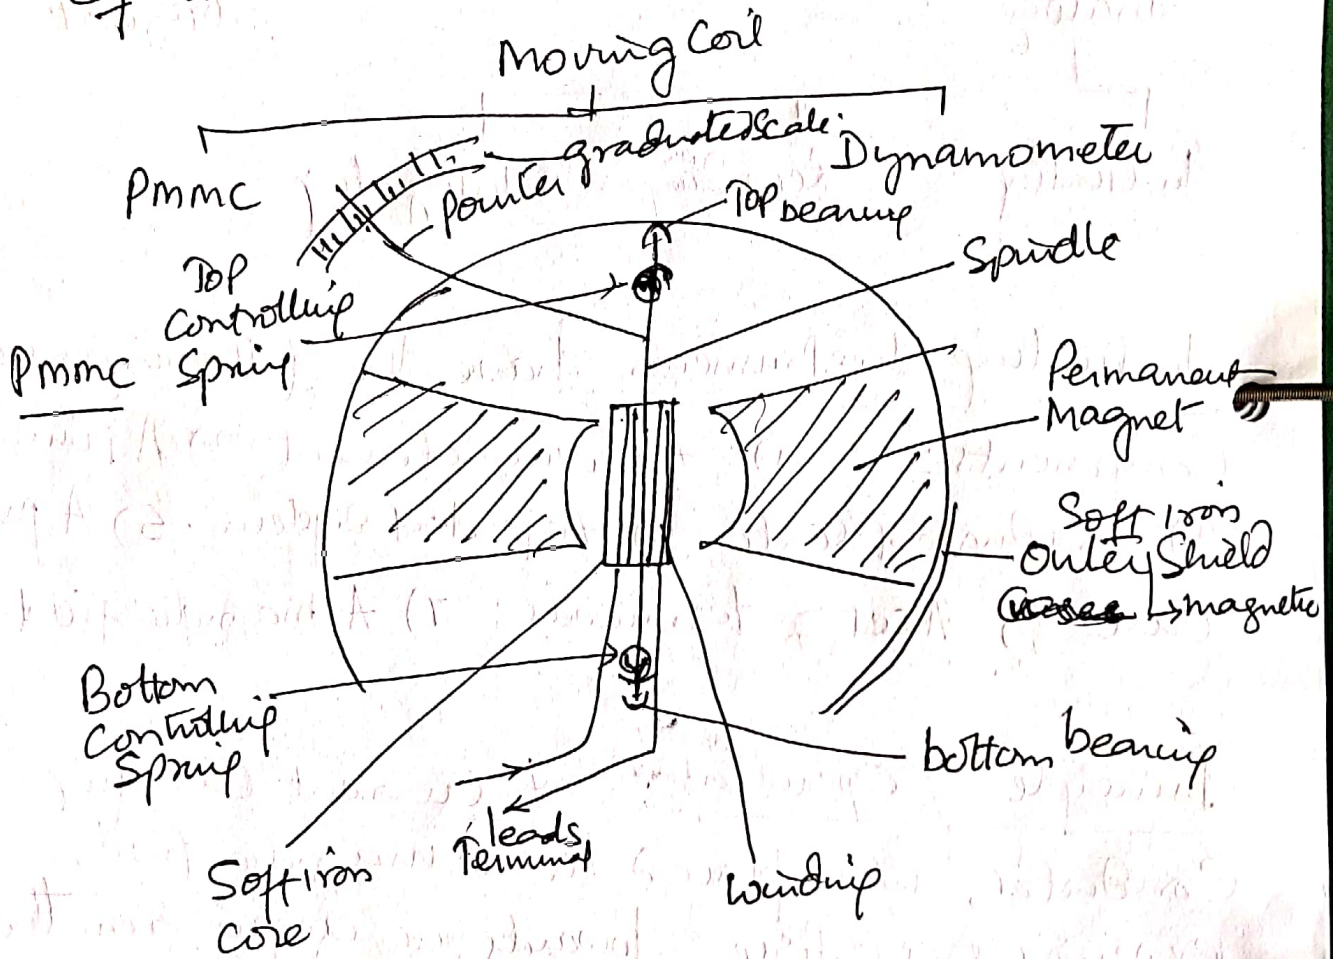 Moving Coil
graduated scale
Dynamometer
PMMC
pointer
Top bearing
Spindle
Top
Controlling
Spring
PMMC
Permanent
Magnet
Soft iron
Outer Shield
↳magnetic
Bottom
Controlling
Spring
bottom bearing
leads
Terminal
Soft iron
Core
winding